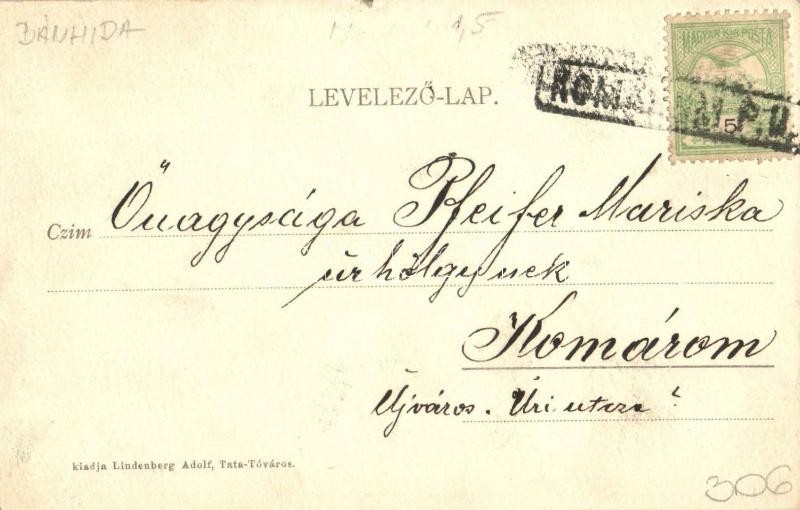 BÁNHIDA
MAGYAR KIR. POSTA
5
LEVELEZŐ-LAP.
Czim Őnagysága Pfeifer Mariska
úrhölgynek
Komárom
Újváros. Úri utcza
kiadja Lindenberg Adolf, Tata-Tóváros.
306